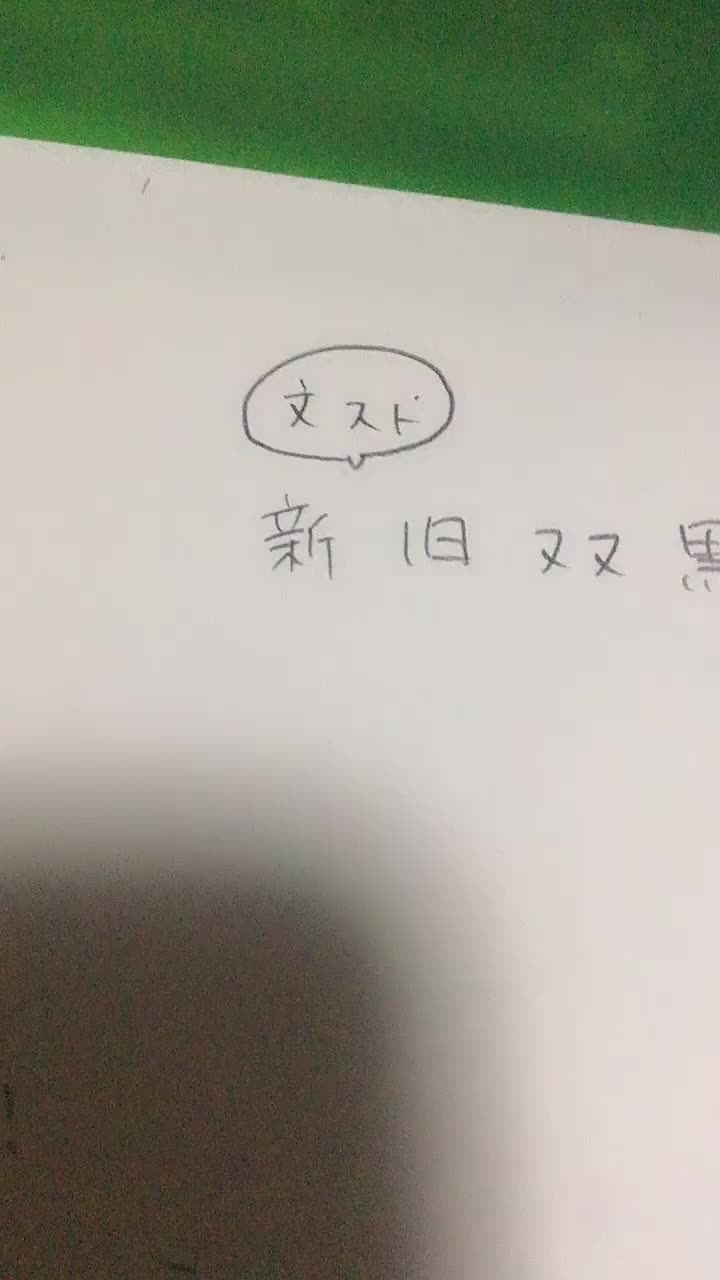 文スド
新旧双黒